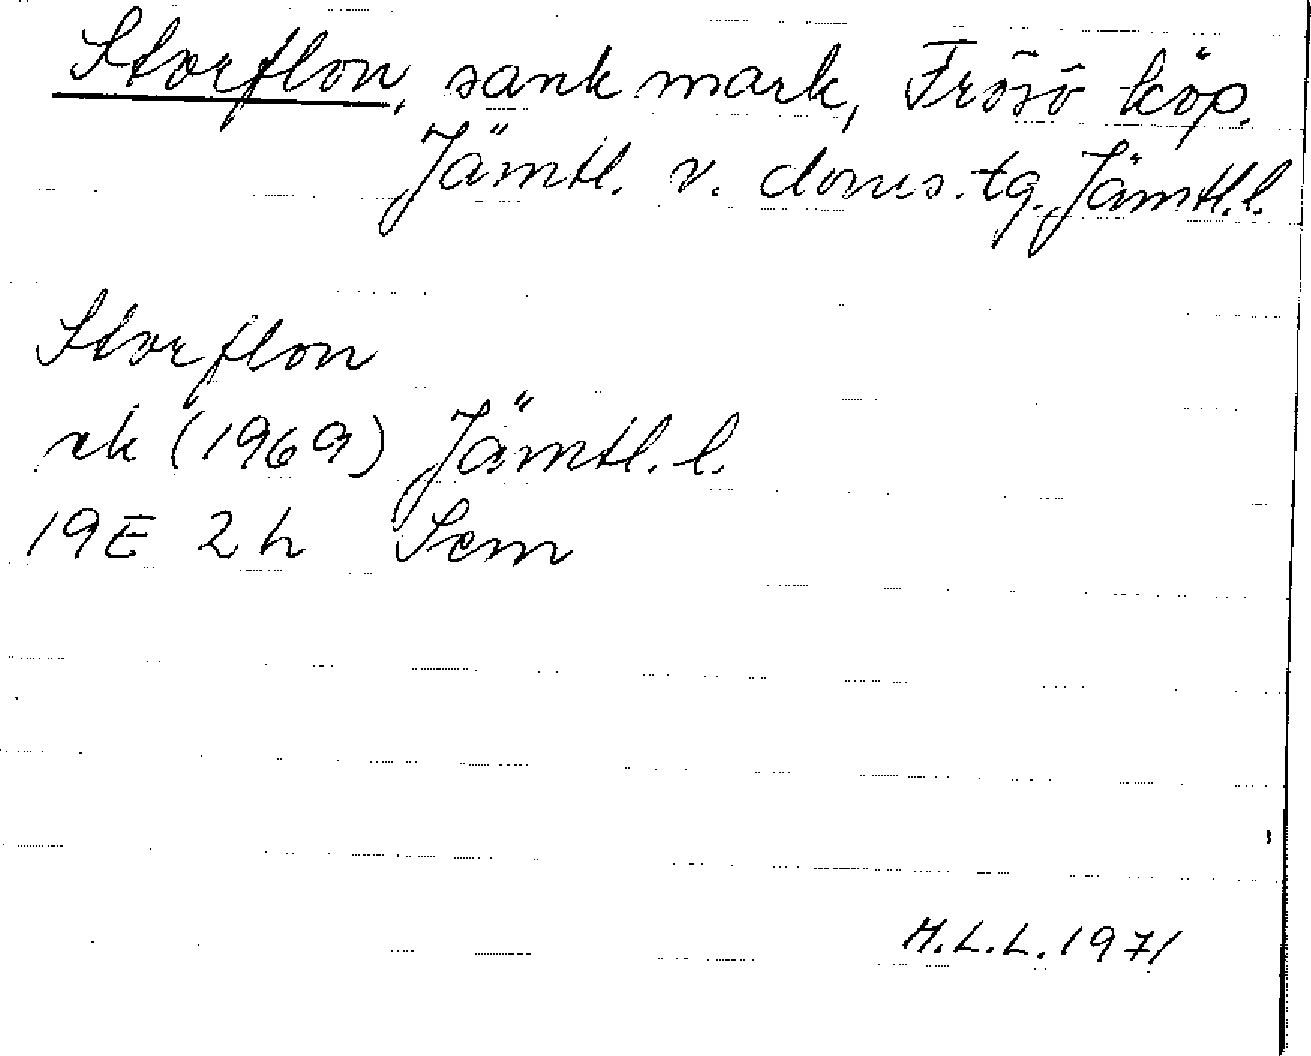 Storflon, sank mark, Frösö köp.
Jämtl. v. doms.tg. Jämtl.l.
Storflon
rk (1969) Jämtl. l.
19E 2h Scm
H.L.L. 1971